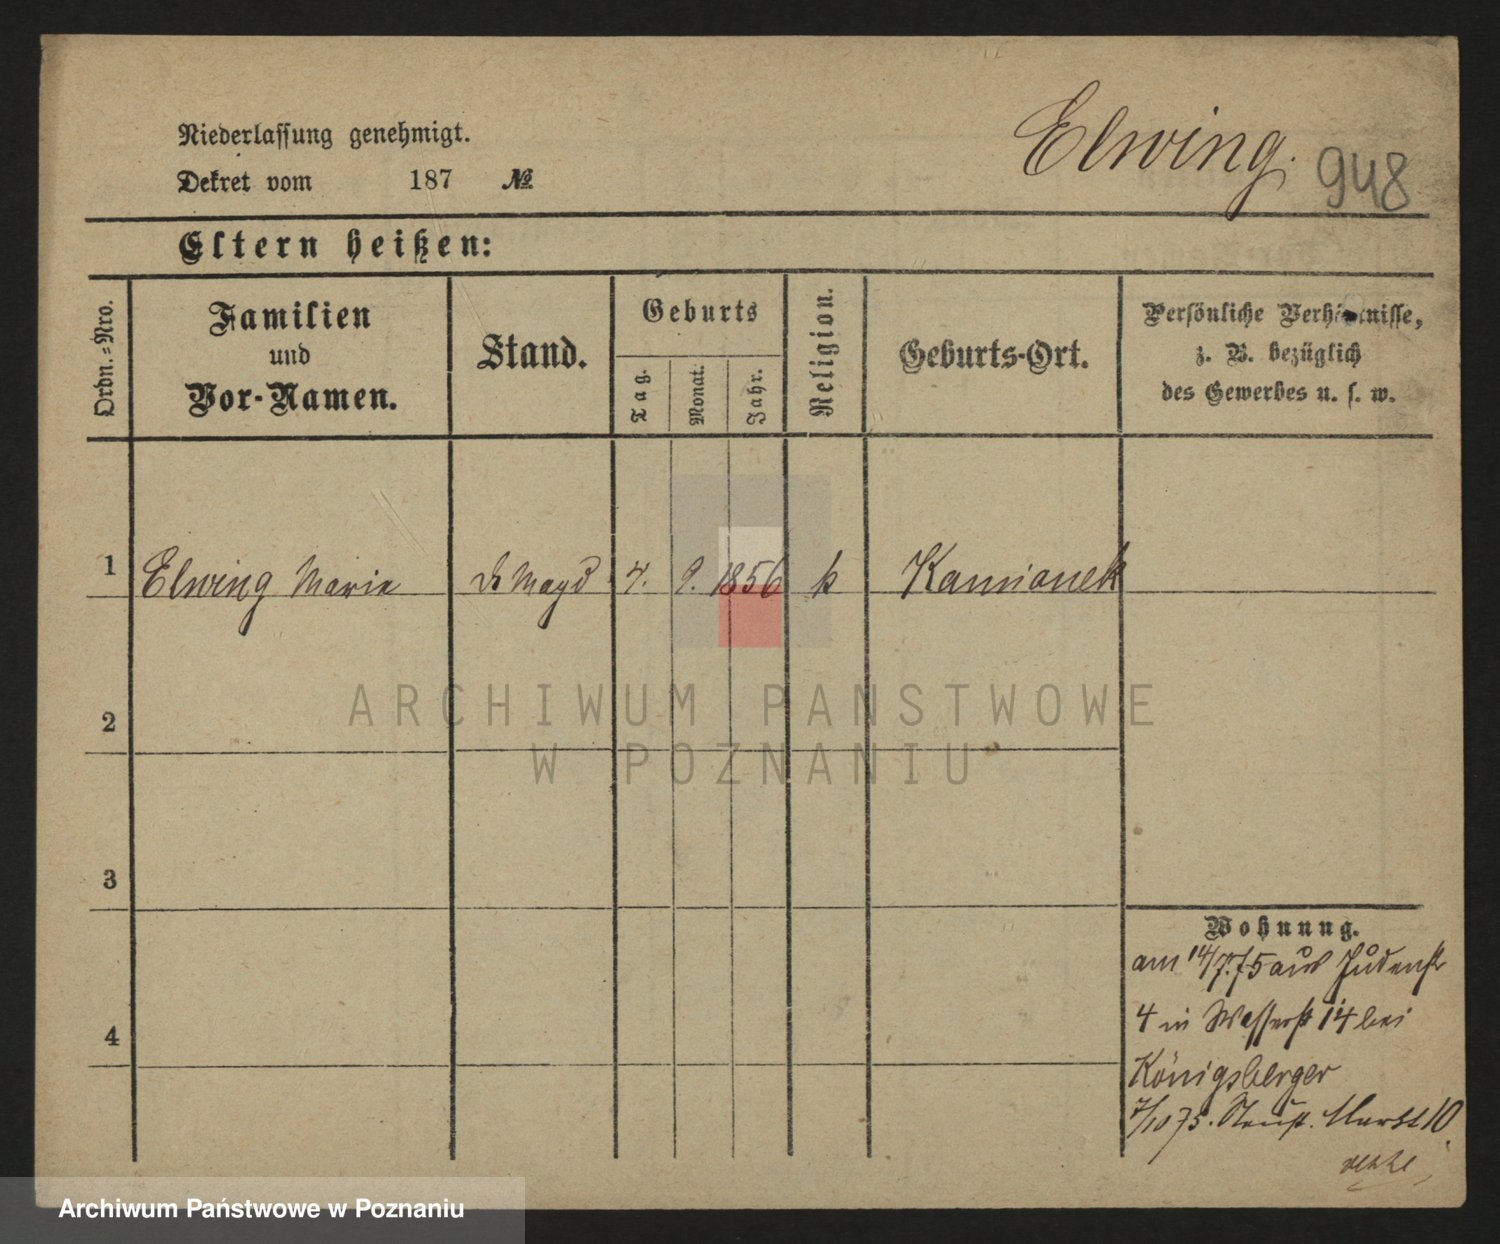 Elwing. 948
Niederlassung genehmigt.
Dekret vom 187 №
Eltern heißen:
Ordn.=Nro.
Familien
und
Vor-Namen.
Stand.
Geburts
Tag.
Monat.
Jahr.
Religion.
Geburts-Ort.
Persönliche Verhältnisse,
z. B. bezüglich
des Gewerbes u. s. w.
1 Elwing Marie Magd 4. 9. 1856 k Kamionek
2
3
4
Wohnung.
am 14/7.75 aus Judenstr
4 in Wasserstr 14 bei
Königsberger
7/10 75. Neust. Markt 10
ARCHIWUM PAŃSTWOWE
W POZNANIU
Archiwum Państwowe w Poznaniu